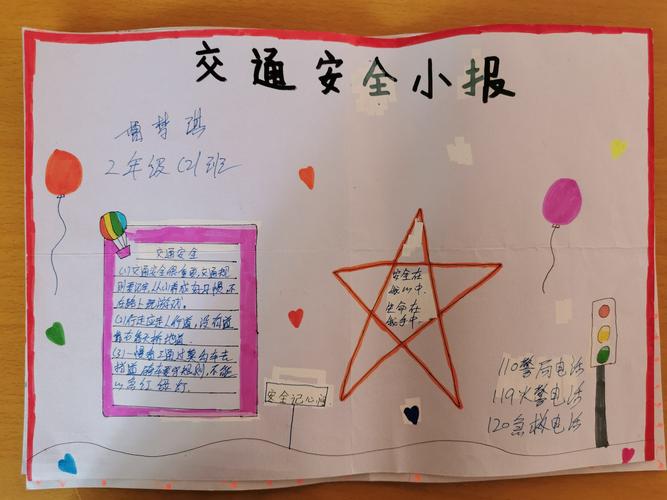 交通安全小报
梦琪
2年级(2)班
交通安全
(1)交通安全很重要,交通规
则要记牢,从小养成好习惯,不
在路上玩游戏。
(2)行走应走人行道,没有道
(3)一慢看二通过莫与车去
抢道 规则,不能
红绿灯.
安全在
我心中.
生命在
我手中.
安全记心
110警局电话
119火警电话
120急救电话